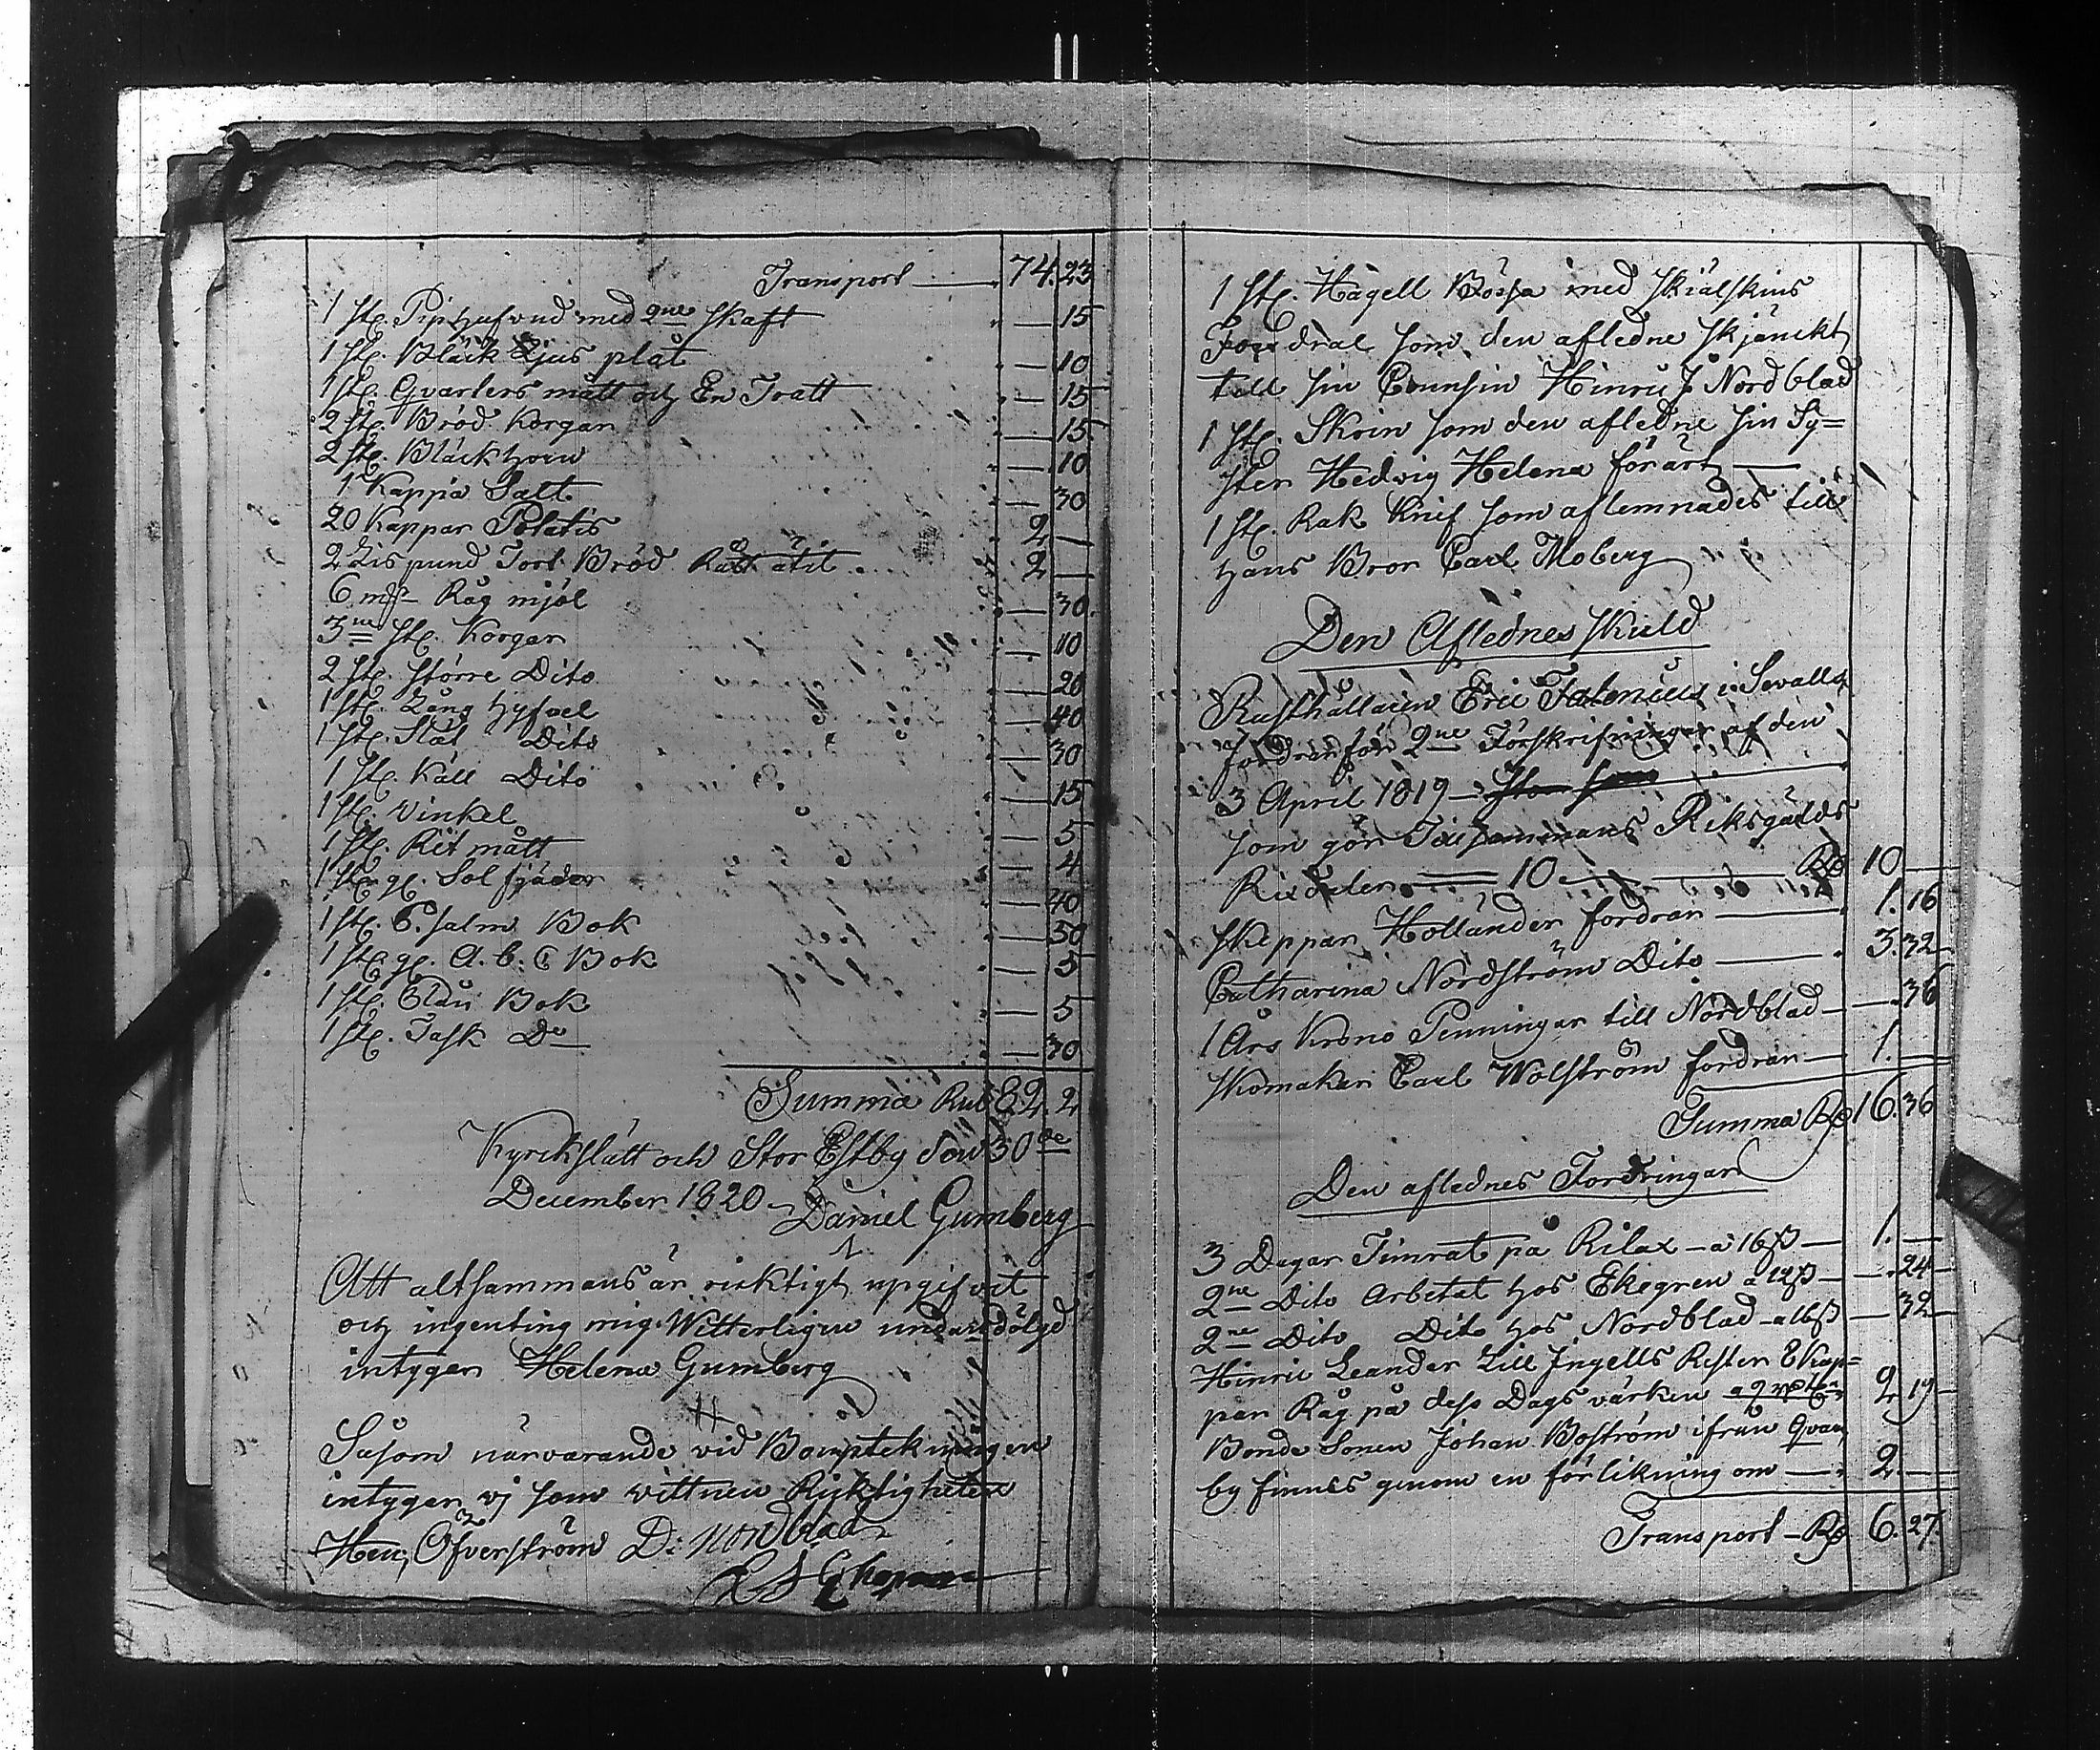 Transport — 74. 23
1 st. Pip hufvud med 2ne skaft — 15
1 st. Bläck Ljus plåt — 10
1 st. Qvarters mått och En Tratt — 15
2 st. Bröd Korgar — 15
2 st. Bläckhorn — 10
1 Kappa Salt — 30
20 Kappar Potatis 2 —
2 Lispund Tort Bröd 2 —
6 m Råg mjöl — 30.
3ne st. Korgar — 10
2 st. större Dito — 20
1 st. Lång hyfvel — 40
1 st. Slät Dito — 30
1 st. Käll Dito — 15
1 st. Vinkel — 5
1 st. Rit mått — 4
1 st. gl. Sol fjäder — 40
1 st. Psalm Bok — 50
1 st. gl. A. b. C Bok — 5
1 st. Bok — 5
1 st. Task Do — 30
Summa Rub 82. 2
Kyrckslätt och Stor Estby den 30de
December 1820 Daniel Gumberg
Att altsammans är ricktigt upgifvit
och ingenting mig Witterligen undandölgd
intygar Helena Gumberg
Såsom närvarande vid Boupteckningen
intygar vj som vittnen Ricktigheten
Hen: Öfverström D: Nordblad
1 st. Hagell Bössa med skiälskins
Foudral som den afledne skjänckt
till sin Cousin Hinric J Nordblad
1 st. Skrin som den aflednе sin Sy=
ster Hedvig Helena förärt —
1 st. Rak Knif som aflemnades till
hans Bror Carl Moberg
Den Aflednes skuld
Rusthållaren Eric Falenius i Sevalla
fordrar för 2ne Förskrifningar af den
3 April 1819 —
som gör Tillsammans Riksgälds
Rixdaler — 10 — Ro 10 —
Skeppar Hollander fordrar — 1. 16
Catharina Nordström Dito — 3. 32
1 Års Krono Penningar till Nordblad — 36
Skomakar Carl Wolström fordrar — 1. —
Summa Ro 16. 36
Den aflednes Fordringar
3 Dagar Timrat på Rilax — a 16 ß — 1. —
2ne Dito Arbetat hos Ekegren a 12 ß — 24
2ne Dito Dito hos Nordblad a 16 ß — 32
Hinric Leander Lill Ingells Rester 8 Kap=
par Råg på dess Dags värken 2. 19
Bonde Sonen Johan Boström ifrån Qvar
by finnes genom en förlikning om — 2. —
Transport — Ro 6. 27.